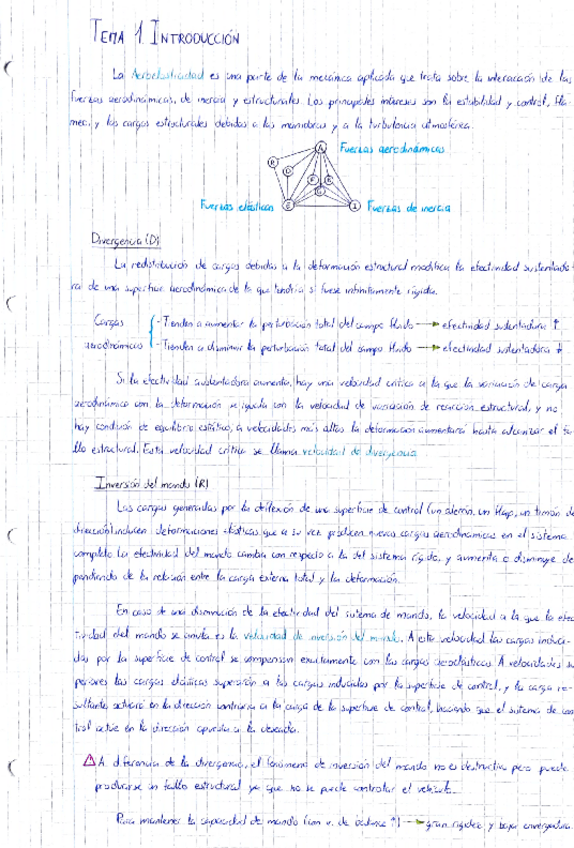 TEMA 1 INTRODUCCIÓN
La Aeroelasticidad es una parte de la mecánica aplicada que trata sobre la interacción de las
fuerzas aerodinámicas, de inercia y estructurales. Los principales intereses son la estabilidad y control, fla
meo, y las cargas estructurales debidas a las maniobras y a la turbulencia atmosférica.
A
Fuerzas aerodinámicas
R
D
F B
Fuerzas elásticas
E
I
Fuerzas de inercia
Divergencia (D)
La redistribución de cargas debidas a la deformación estructural modifica la efectividad sustentado
ra de una superficie aerodinámica de la que tendría si fuese infinitamente rígida.
Cargas
- Tienden a aumentar la perturbación total del campo fluido → efectividad sustentadora ↑
aerodinámicas
- Tienden a disminuir la perturbación total del campo fluido → efectividad sustentadora ↓
Si la efectividad sustentadora aumenta, hay una velocidad crítica a la que la variación de carga
aerodinámica con la deformación se iguala con la velocidad de variación de reacción estructural, y no
hay condición de equilibrio estático, a velocidades más altas la deformación aumentará hasta alcanzar el fa
llo estructural. Esta velocidad crítica se llama velocidad de divergencia
Inversión del mando (R)
Las cargas generadas por la deflexión de una superficie de control (un alerón, un flap, un timón de
dirección) inducen deformaciones elásticas que a su vez producen nuevas cargas aerodinámicas en el sistema
completo. La efectividad del mando cambia con respecto a la del sistema rígido, y aumenta o disminuye de
pendiendo de la relación entre la carga externa total y la deformación.
En caso de una disminución de la efectividad del sistema de mando, la velocidad a la que la efec
tividad del mando se anula es la velocidad de inversión del mando. A esta velocidad las cargas induci-
das por la superficie de control se compensan exactamente con las cargas aeroelásticas. A velocidades su
periores las cargas elásticas superarán a las cargas inducidas por la superficie de control, y la carga re-
sultante actuará en la dirección contraria a la carga de la superficie de control, haciendo que el sistema de con
trol actúe en la dirección opuesta a la deseada.
A diferencia de la divergencia, el fenómeno de inversión del mando no es destructivo pero puede
producirse un fallo estructural ya que no se puede controlar el vehículo.
Para mantener la capacidad de mando (con v. de ↑) → gran rigidez y baja envergadura.